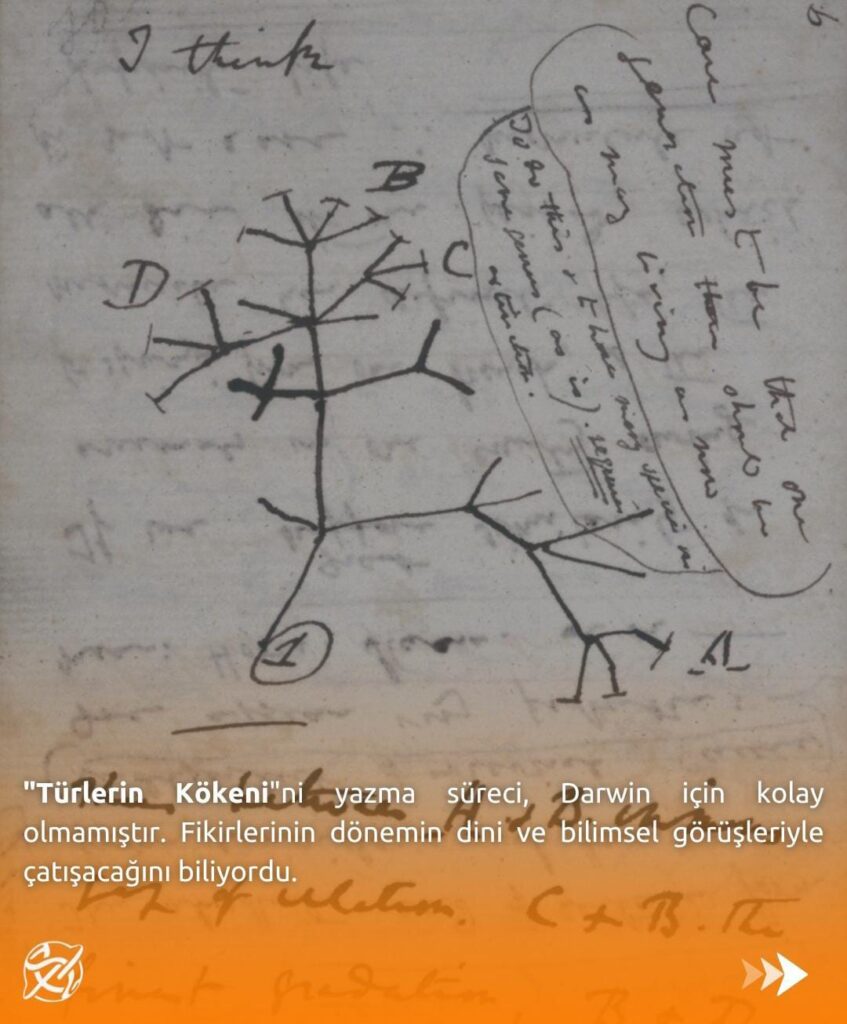 I think
Case must be that one
generation then should be
as many living as now
To do this & to have many species in
same genus (as is). requires
extinction.
B
C
D
A
1
"Türlerin Kökeni"ni yazma süreci, Darwin için kolay
olmamıştır. Fikirlerinin dönemin dini ve bilimsel görüşleriyle
çatışacağını biliyordu.
Thus between A & B.
of relation. C & B. The
finest gradation, B & D